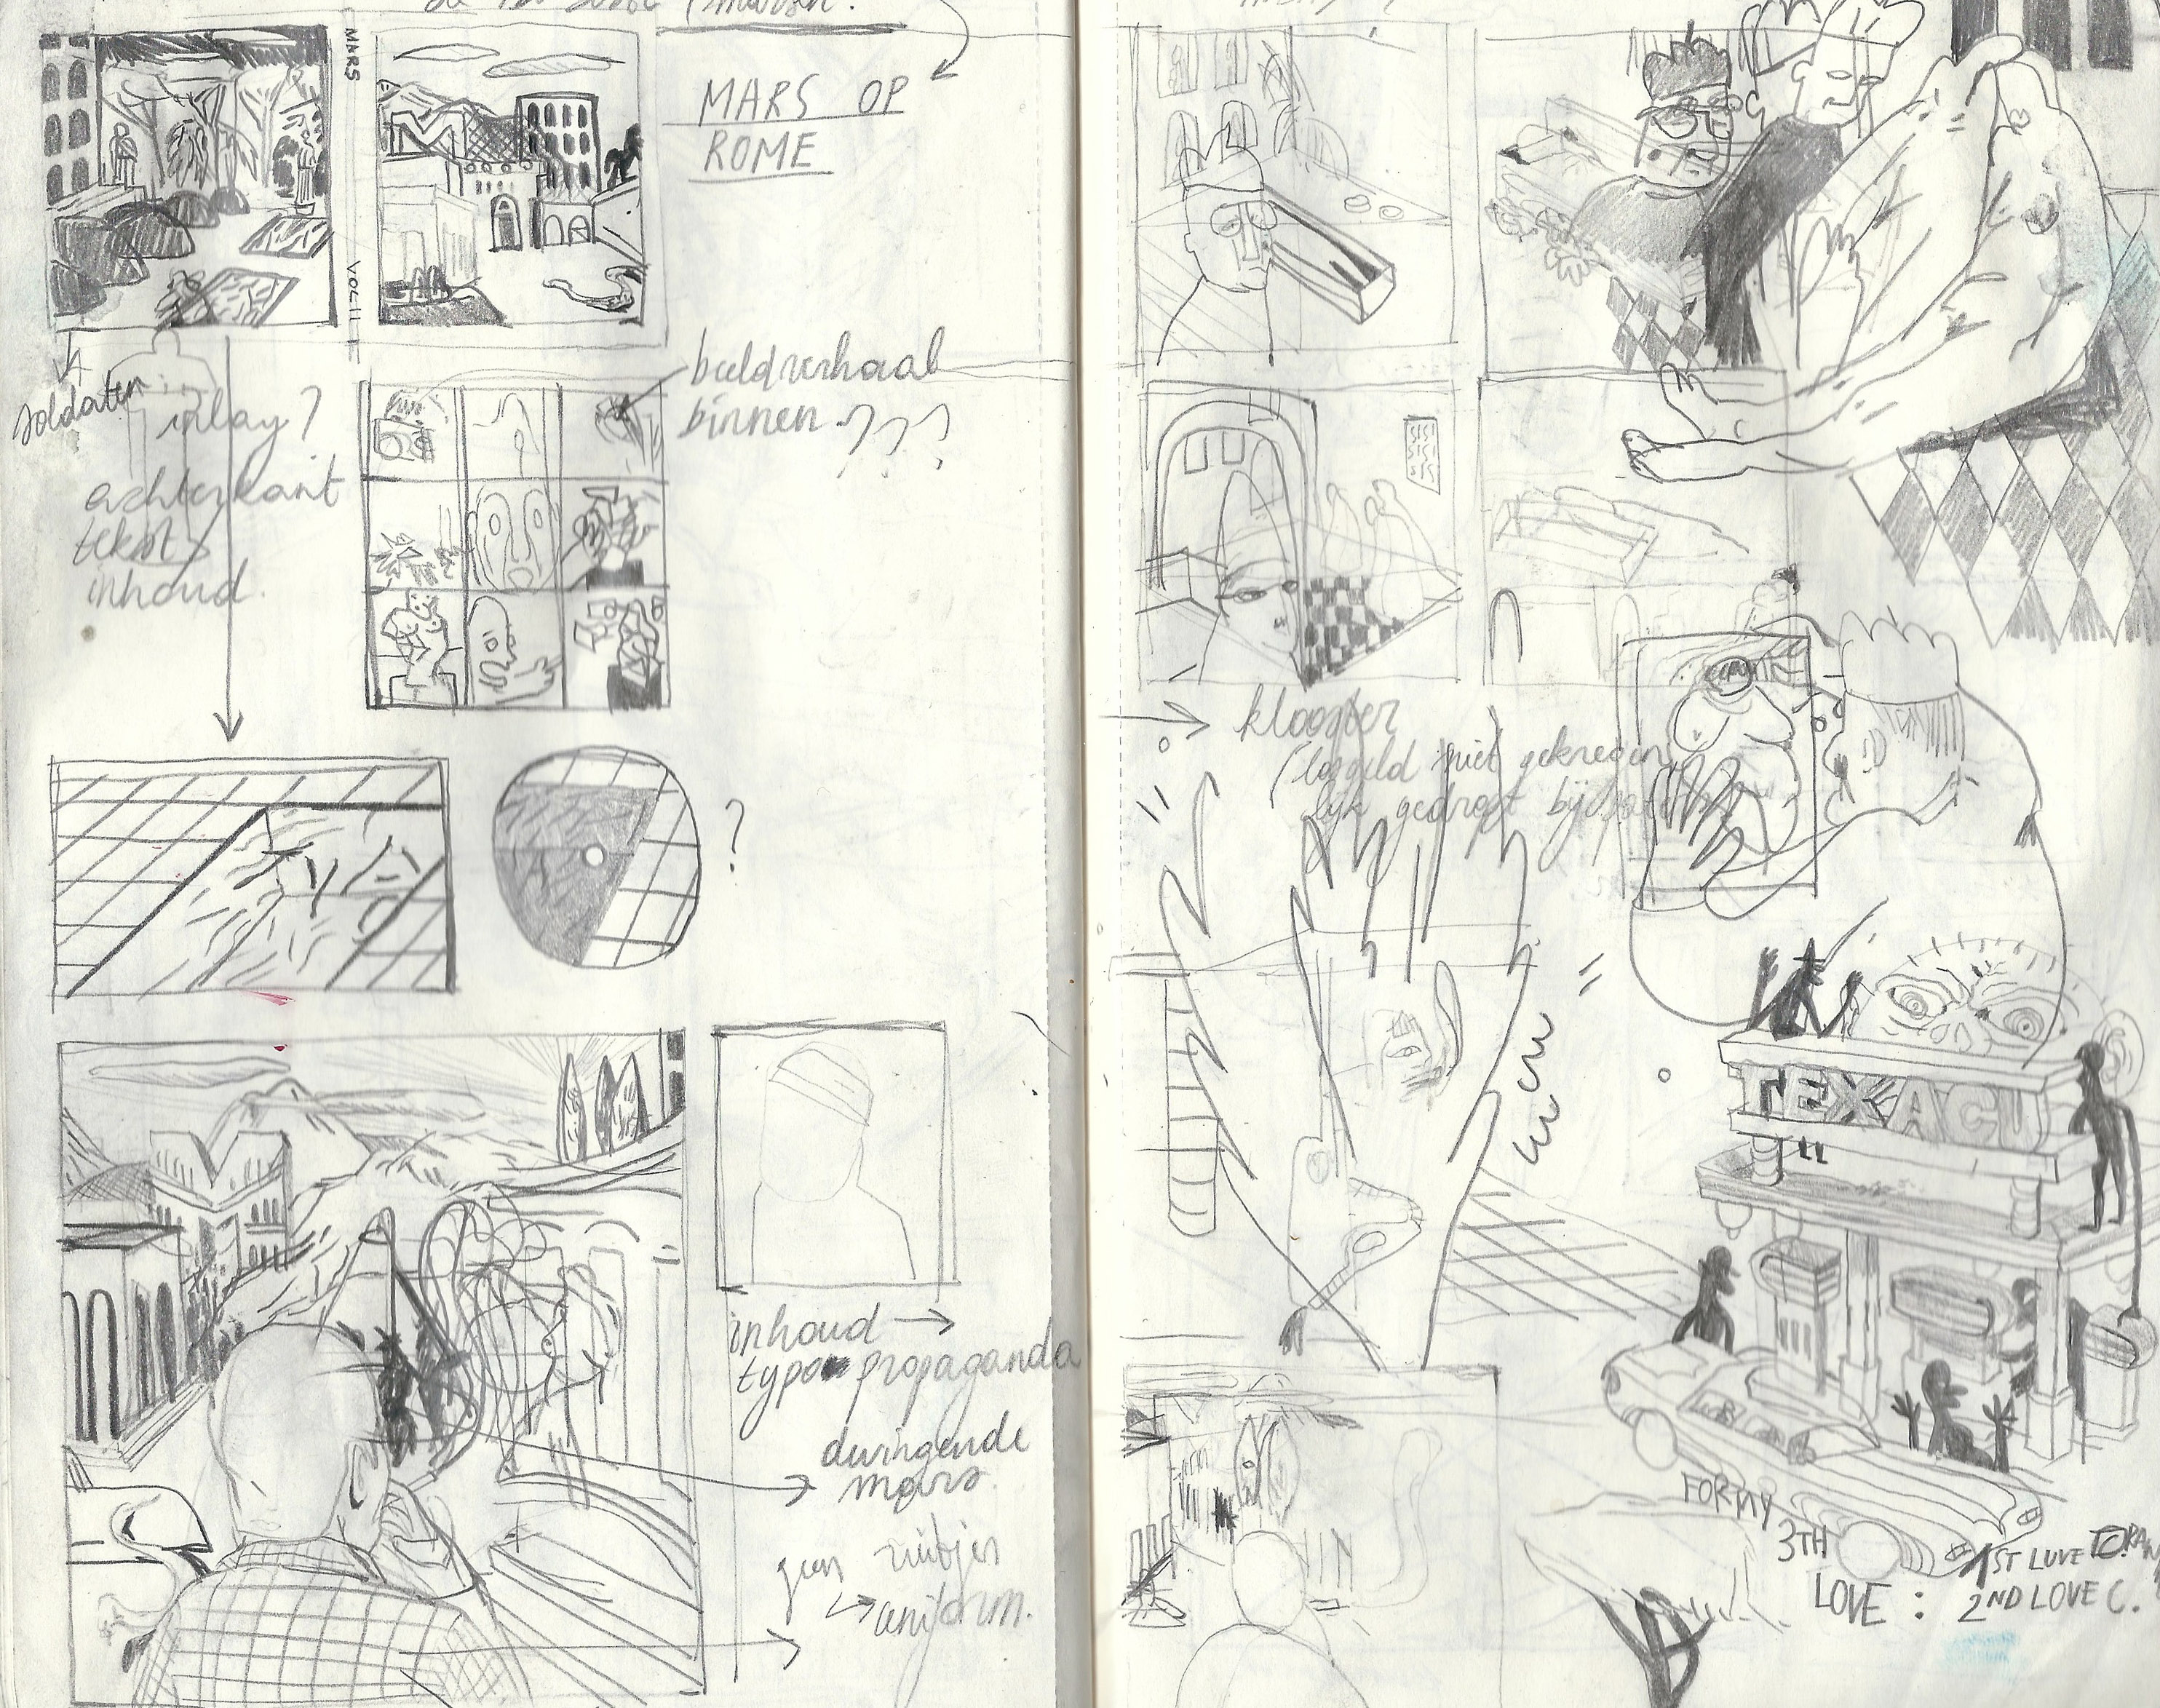 MARS
VOL II
MARS OP
ROME
soldaten
inlay?
achterkant
tekst
inhoud.
beeldverhaal
binnen ???
?
inhoud →
typo propaganda
dwingende
mars.
geen ruitjes
uniform.
klooster
(losgeld niet gekregen
lijk gedropt bij
TEXACO
FOR MY
3TH
LOVE :
1ST LOVE
2ND LOVE C.